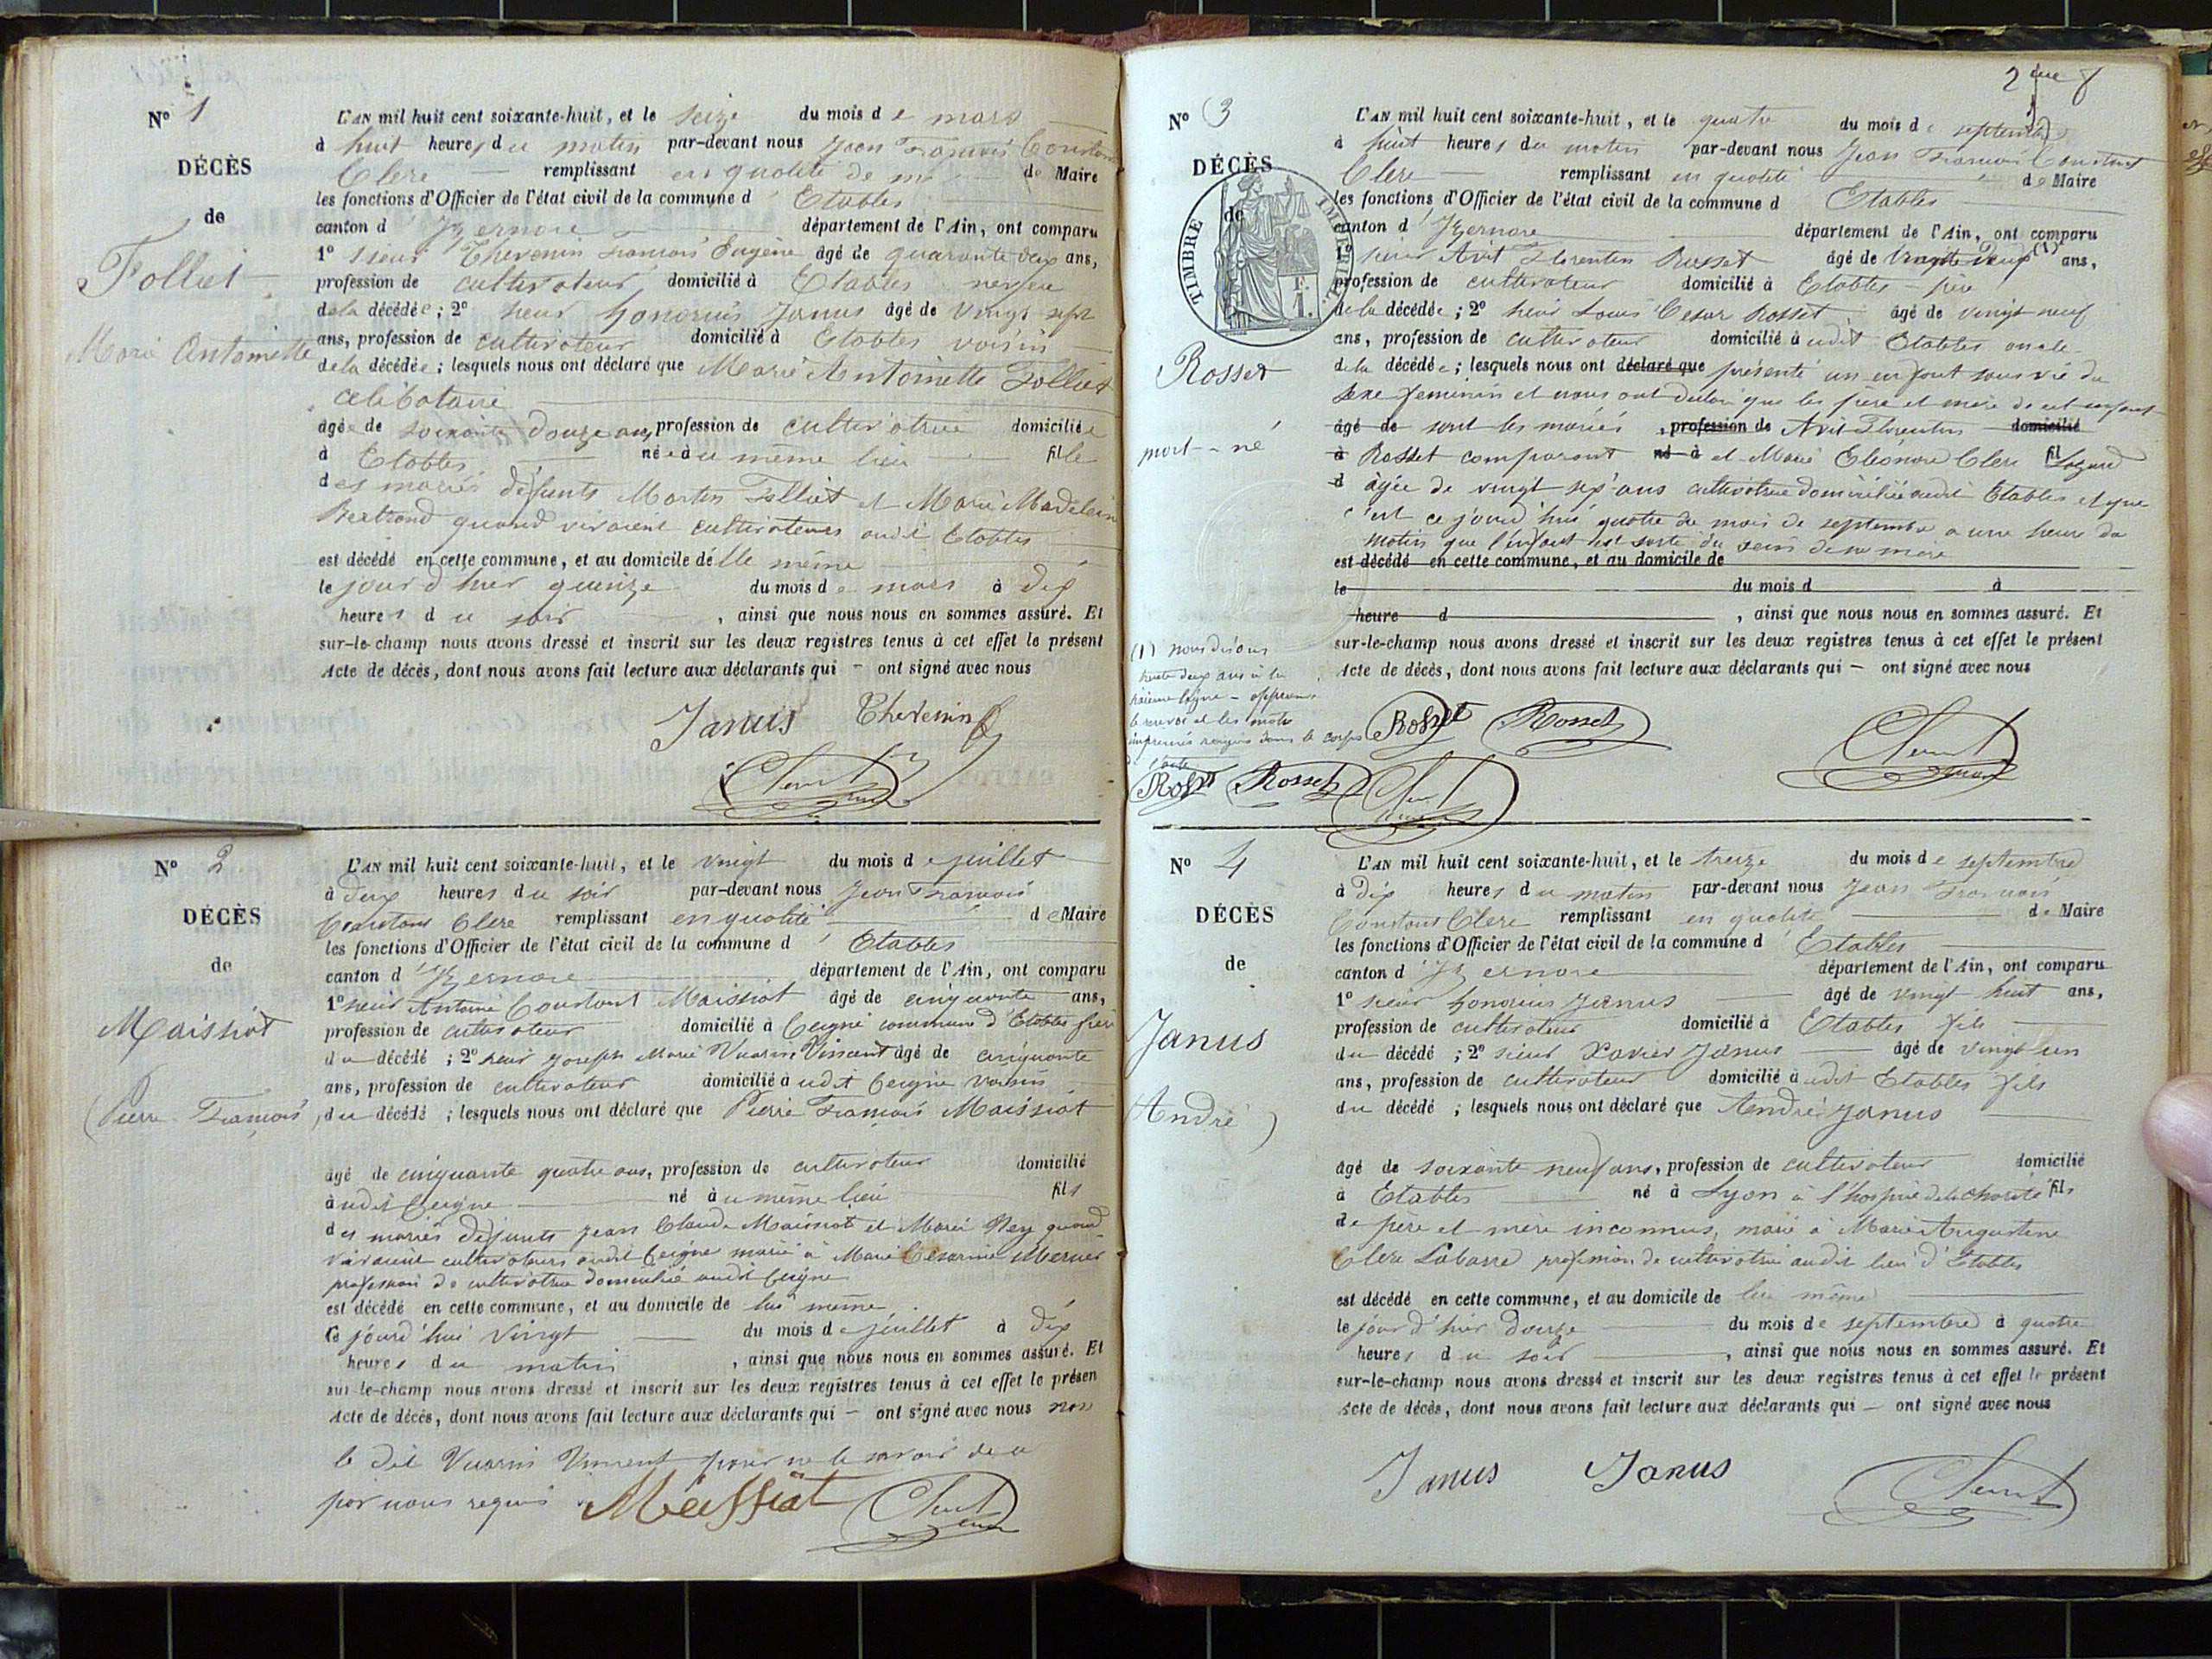 N° 1
DÉCÈS
de
Folliet
Marie Antoinette
L'AN mil huit cent soixante-huit, et le seize du mois de mars
à huit heures du matin par-devant nous Jean François Constant
Clerc remplissant en qualité de Maire
les fonctions d'Officier de l'état civil de la commune d'Etables
canton d'Izernore département de l'Ain, ont comparu
1° sieur Thevenin François Eugène âgé de quarante deux ans,
profession de cultivateur domicilié à Etables neveu
de la décédée ; 2° sieur Honorius Janus âgé de vingt sept
ans, profession de cultivateur domicilié à Etables voisin
de la décédée ; lesquels nous ont déclaré que Marie Antoinette Folliet
celibataire
âgée de soixante douze ans, profession de cultivatrice domiciliée
à Etables née au même lieu fille
des mariés défunts Martin Folliet et Marie Madeleine
Bertrand quand vivaient cultivateurs audit Etables
est décédé en cette commune, et au domicile d'elle même
le jour d'hier quinze du mois de mars à dix
heures du soir , ainsi que nous nous en sommes assuré. Et
sur-le-champ nous avons dressé et inscrit sur les deux registres tenus à cet effet le présent
Acte de décès, dont nous avons fait lecture aux déclarants qui – ont signé avec nous
Janus Thevenin
N° 2
DÉCÈS
de
Maissiat
(Pierre François)
L'AN mil huit cent soixante-huit, et le vingt du mois de juillet
à deux heures du soir par-devant nous Jean François
Constant Clerc remplissant en qualité de Maire
les fonctions d'Officier de l'état civil de la commune d'Etables
canton d'Izernore département de l'Ain, ont comparu
1° sieur Antoine Constant Maissiat âgé de cinquante ans,
profession de cultivateur domicilié à Ceigne commune d'Etables frère
du décédé ; 2° sieur Joseph Marie Vuarin Vincent âgé de cinquante
ans, profession de cultivateur domicilié audit Ceigne voisin
du décédé ; lesquels nous ont déclaré que Pierre François Maissiat
âgé de cinquante quatre ans, profession de cultivateur domicilié
audit Ceigne né au même lieu fils
des mariés défunts Jean Claude Maissiat et Marie Rey quand
vivaient cultivateurs audit Ceigne marié à Marie Césarine Mernier
profession de cultivatrice domiciliée audit Ceigne
est décédé en cette commune, et au domicile de lui même
ce jourd'hui vingt du mois de juillet à dix
heures du matin , ainsi que nous nous en sommes assuré. Et
sur-le-champ nous avons dressé et inscrit sur les deux registres tenus à cet effet le présen
Acte de décès, dont nous avons fait lecture aux déclarants qui – ont signé avec nous non
le dit Vuarin Vincent pour ne le savoir de ce
par nous requis Maissiat
N° 3
DÉCÈS
de
TIMBRE IMPERIAL
Rosset
mort-né
L'AN mil huit cent soixante-huit, et le quatre du mois de septembre
à huit heures du matin par-devant nous Jean François Constant
Clerc remplissant en qualité de Maire
les fonctions d'Officier de l'état civil de la commune d Etables
canton d'Izernore département de l'Ain, ont comparu
1° sieur Avit Florentin Rosset âgé de vingt deux (1) ans,
profession de cultivateur domicilié à Etables père
de la décédée ; 2° sieur Louis Cesar Rosset âgé de vingt neuf
ans, profession de cultivateur domicilié audit Etables oncle
de la décédée ; lesquels nous ont déclaré que présenté un enfant sans vie du
sexe feminin et nous ont déclaré que les père et mère de cet enfant
âgé de sont les mariés profession de Avit Florentin domicilié
à Rosset comparant né à et Marie Eléonore Clerc fil Lazard
d âgée de vingt six ans cultivatrice domiciliée audit Etables et que
c'est ce jourd'hui quatre du mois de septembre a une heure du
matin que l'enfant est sorti du sein de sa mère
est décédé en cette commune, et au domicile de
le du mois d à
heure d , ainsi que nous nous en sommes assuré. Et
sur-le-champ nous avons dressé et inscrit sur les deux registres tenus à cet effet le présent
Acte de décès, dont nous avons fait lecture aux déclarants qui – ont signé avec nous
(1) nous disons
trente deux ans à la
le renvoi et les mots
imprimés rayés dans le corps
de l'acte
Rosset Rosset
Rosset Rosset
N° 4
DÉCÈS
de
Janus
(André)
L'AN mil huit cent soixante-huit, et le treize du mois de septembre
à dix heures du matin par-devant nous Jean François
Constant Clerc remplissant en qualité de Maire
les fonctions d'Officier de l'état civil de la commune d'Etables
canton d'Izernore département de l'Ain, ont comparu
1° sieur Honorius Janus âgé de vingt huit ans,
profession de cultivateur domicilié à Etables fils
du décédé ; 2° sieur Xavier Janus âgé de vingt un
ans, profession de cultivateur domicilié audit Etables fils
du décédé ; lesquels nous ont déclaré que André Janus
âgé de soixante neuf ans, profession de cultivateur domicilié
à Etables né à Lyon à l'hospice de la charité fils
de père et mère inconnus, marié à Marie Augustine
Clerc Labarre profession de cultivatrice audit lieu d'Etables
est décédé en cette commune, et au domicile de lui même
le jour d'hier douze du mois de septembre à quatre
heures du soir , ainsi que nous nous en sommes assuré. Et
sur-le-champ nous avons dressé et inscrit sur les deux registres tenus à cet effet le présent
Acte de décès, dont nous avons fait lecture aux déclarants qui – ont signé avec nous
Janus Janus